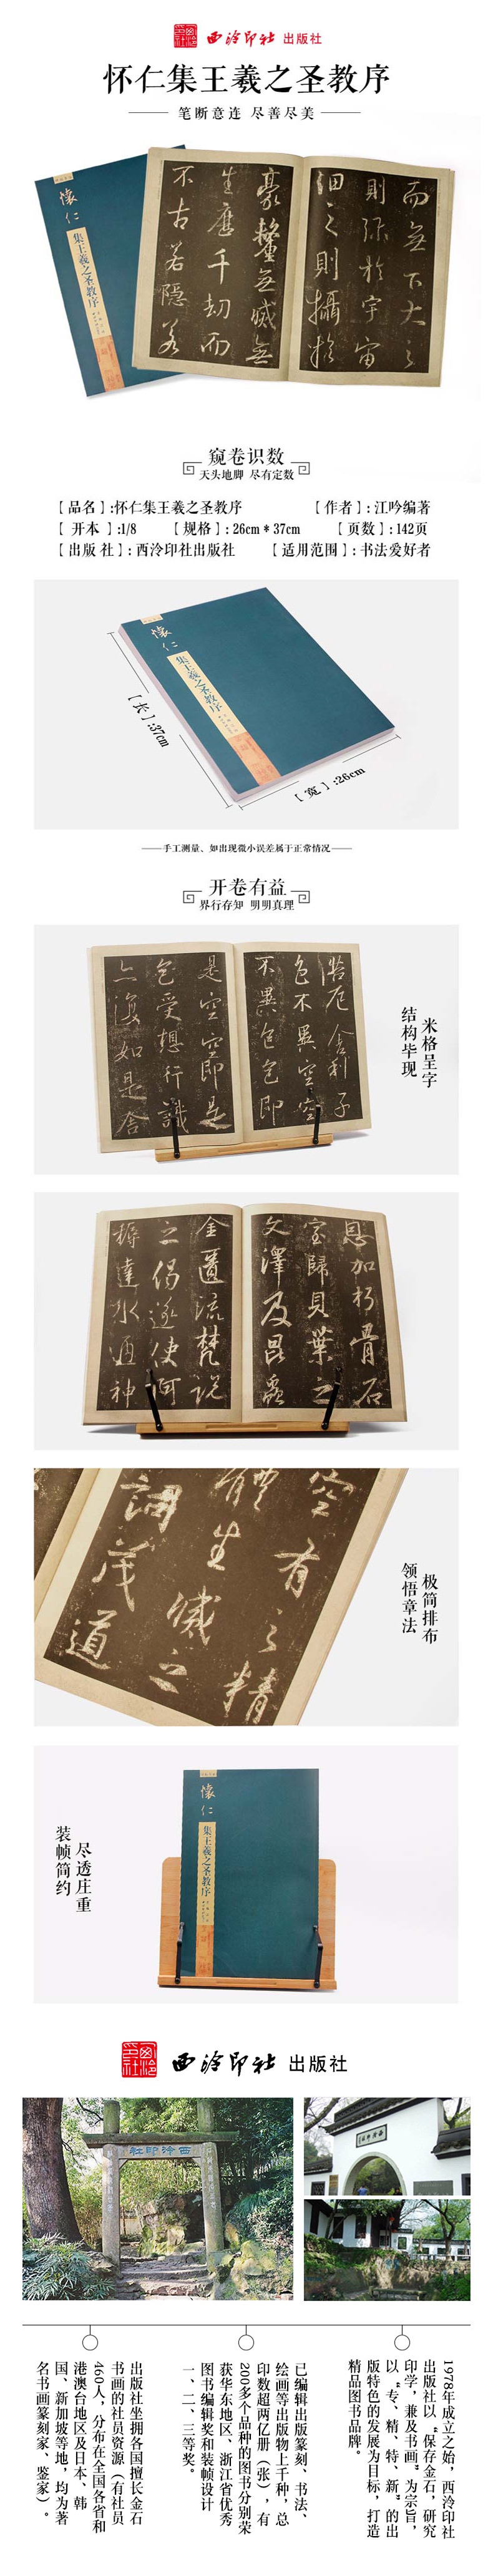 西泠印社 出版社
怀仁集王羲之圣教序
笔断意连 尽善尽美
而無下大之
則弥於宇宙
細之則攝於
豪釐無滅無
生歷千劫而
不古若隱若
懷仁
集王羲之圣教序
窥卷识数
天头地脚 尽有定数
【品名】:怀仁集王羲之圣教序
【作者】:江吟编著
【开本】:1/8
【规格】:26cm * 37cm
【页数】:142页
【出版 社】:西泠印社出版社
【适用范围】:书法爱好者
懷仁
集王羲之圣教序
【长】:37cm
【宽】:26cm
手工测量、如出现微小误差属于正常情况
开卷有益
界行存知 明明真理
苦厄舍利子
色不異空空
不異色色即
是空空即是
色受想行識
亦復如是舍
米格呈字
结构毕现
恩加朽骨石
室歸貝葉之
文澤及昆蟲
金匱流梵說
之偈遂使阿
耨達水通神
空有之精
體生滅之
詞茂道
极简排布
领悟章法
尽透庄重
装帧简约
懷仁
集王羲之圣教序
西泠印社 出版社
西泠印社
1978年成立之始，西泠印社
出版社以“保存金石，研究
印学，兼及书画”为宗旨，
以“专、精、特、新”的出
版特色的发展为目标，打造
精品图书品牌。
已编辑出版篆刻、书法、
绘画等出版物上千种，总
印数超两亿册（张），有
200多个品种的图书分别荣
获华东地区、浙江省优秀
图书编辑奖和装帧设计
一、二、三等奖。
出版社坐拥各国擅长金石
书画的社员资源（有社员
460人，分布在全国各省和
港澳台地区及日本、韩
国、新加坡等地，均为著
名书画篆刻家、鉴家）。